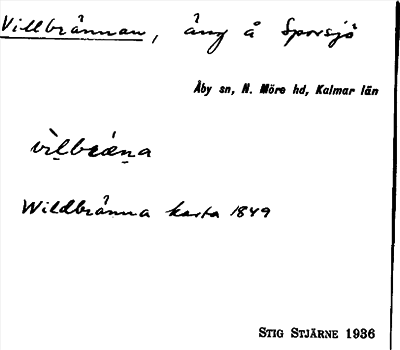 Villbrännan, äng å Sporsjö
Åby sn, N. Möre hd, Kalmar län
vìlbræ̀na
Wildbränna karta 1849
STIG STJÄRNE 1936